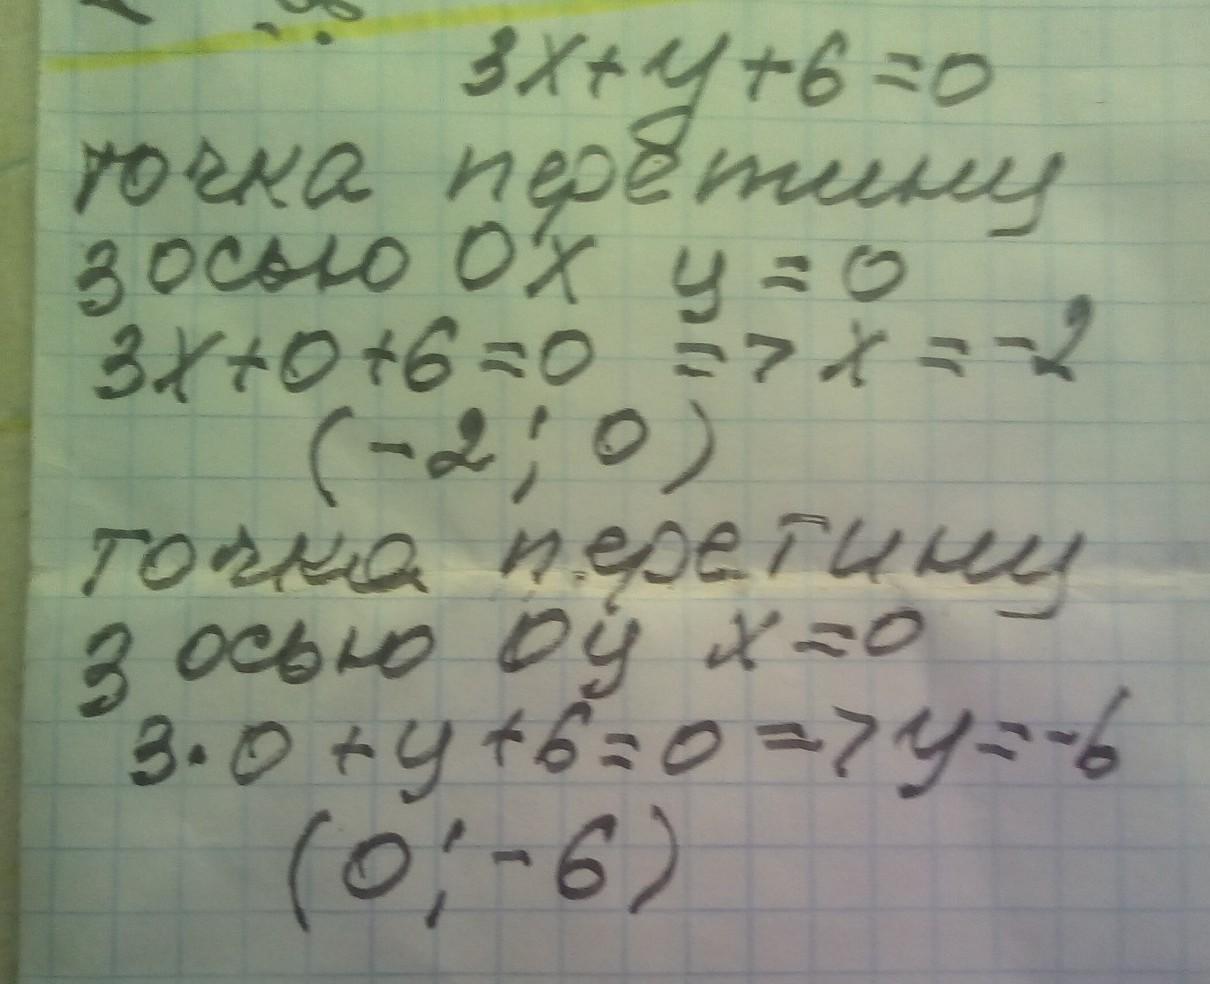 3x+y+6=0
точка перетину
з осью Ox y=0
3x+0+6=0 => x=-2
(-2; 0)
точка перетину
з осью Oy x=0
3·0+y+6=0 => y=-6
(0; -6)